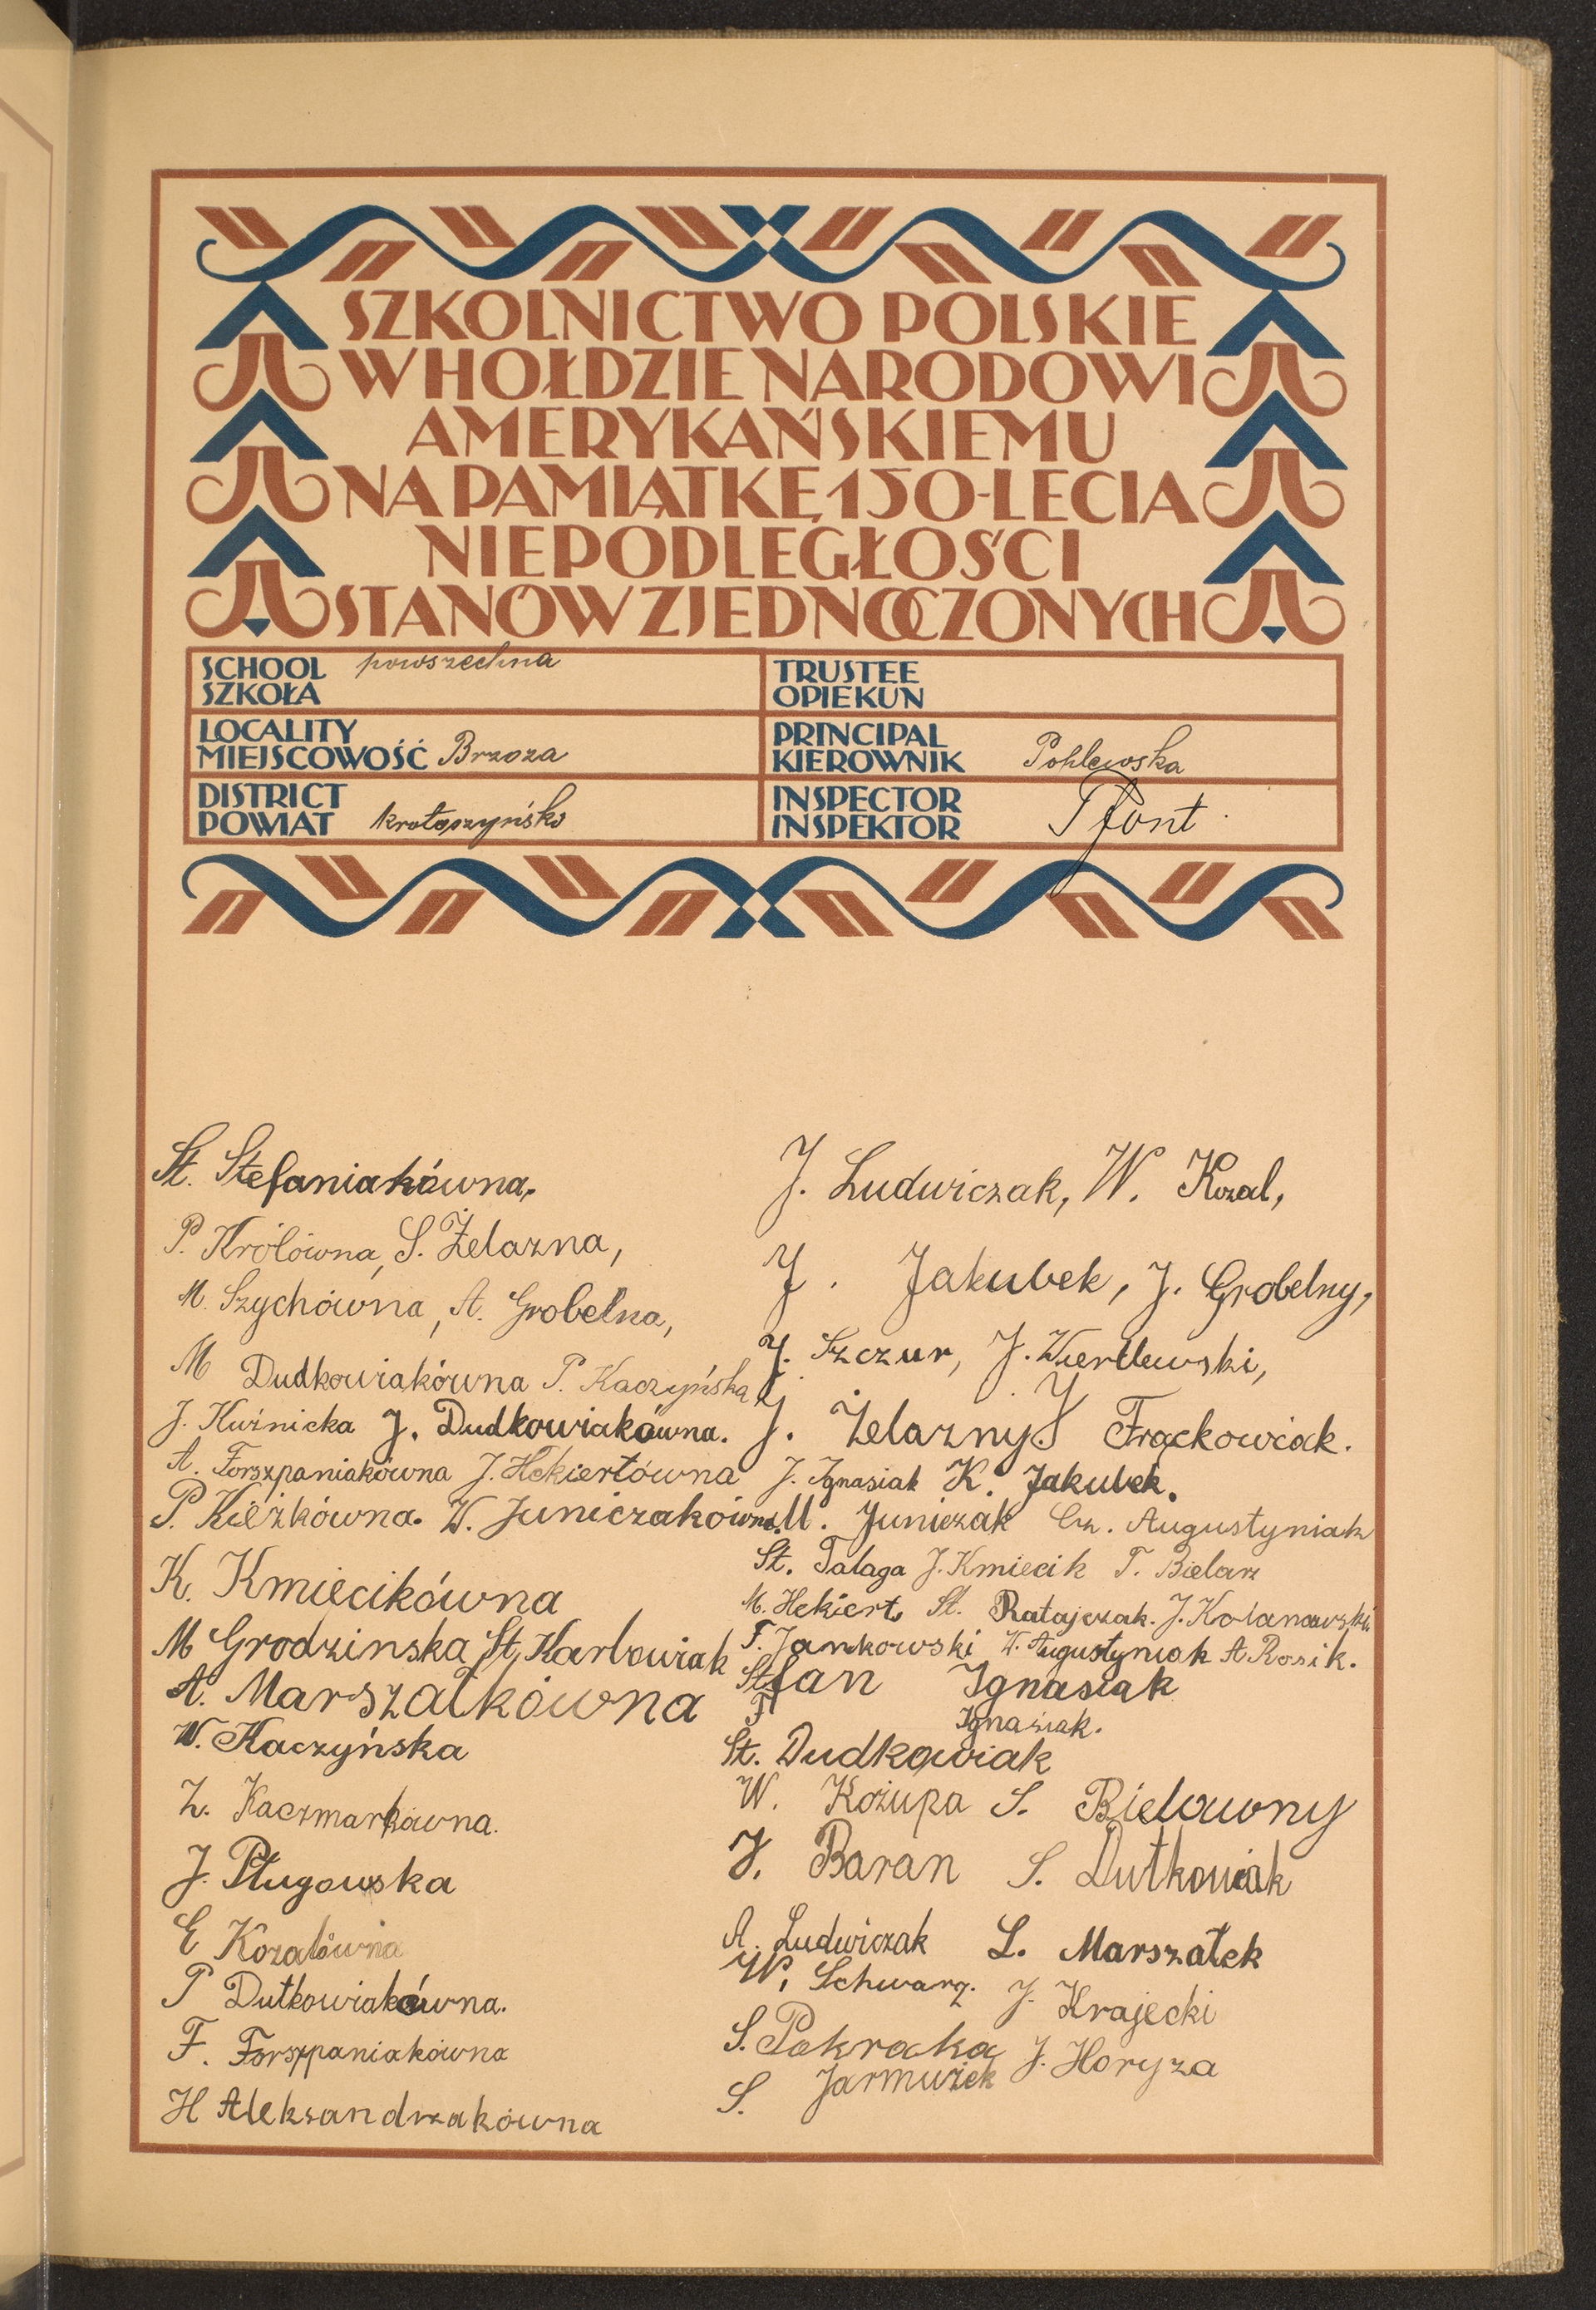 SZKOLNICTWO POLSKIE
W HOŁDZIE NARODOWI
AMERYKAŃSKIEMU
NA PAMIĄTKĘ 150-LECIA
NIEPODLEGŁOŚCI
STANÓW ZJEDNOCZONYCH
SCHOOL
SZKOŁA powszechna
LOCALITY
MIEJSCOWOŚĆ Brzoza
DISTRICT
POWIAT krotoszyńsko
TRUSTEE
OPIEKUN
PRINCIPAL
KIEROWNIK Pohlewska
INSPECTOR
INSPEKTOR Pfont
St. Stefaniakówna,
P. Królówna, S. Żelazna,
M. Szychówna, A. Grobelna,
M Dudkowiakówna P. Kaczyńska
J. Kuźnicka J. Dudkowiakówna.
A. Forszpaniakówna J. Hekiertówna
P. Kieżkówna. W. Juniczakówna.
K. Kmiecikówna
M Grodzinska St. Karbowiak
A. Marszałkówna
W. Kaczyńska
Z. Kaczmarkówna.
J. Pługowska
E Kozalówna
P Dutkowiakówna.
F. Forszpaniakówna
H Aleksandrzakówna
J. Ludwiczak, W. Kozal,
J. Jakubek, J. Grobelny,
J. Szczur, J. Wiertlewski,
J. Żelazny. J Frąckowiak.
J. Ignasiak K. Jakubek.
M. Juniczak Cz. Augustyniak
St. Talaga J. Kmiecik T. Bielarz
M. Hekiert St. Ratajczak. J. Kolanowski
F. Jankowski W. Augustyniak A Rosik.
Stefan Ignasiak
F Ignasiak.
St. Dudkowiak
W. Kożupa S. Bielawny
J. Baran S. Dutkowiak
A. Ludwiczak L. Marszałek
W. Schwarz. J. Krajecki
S. Pokracka J. Horyza
S. Jarmużek